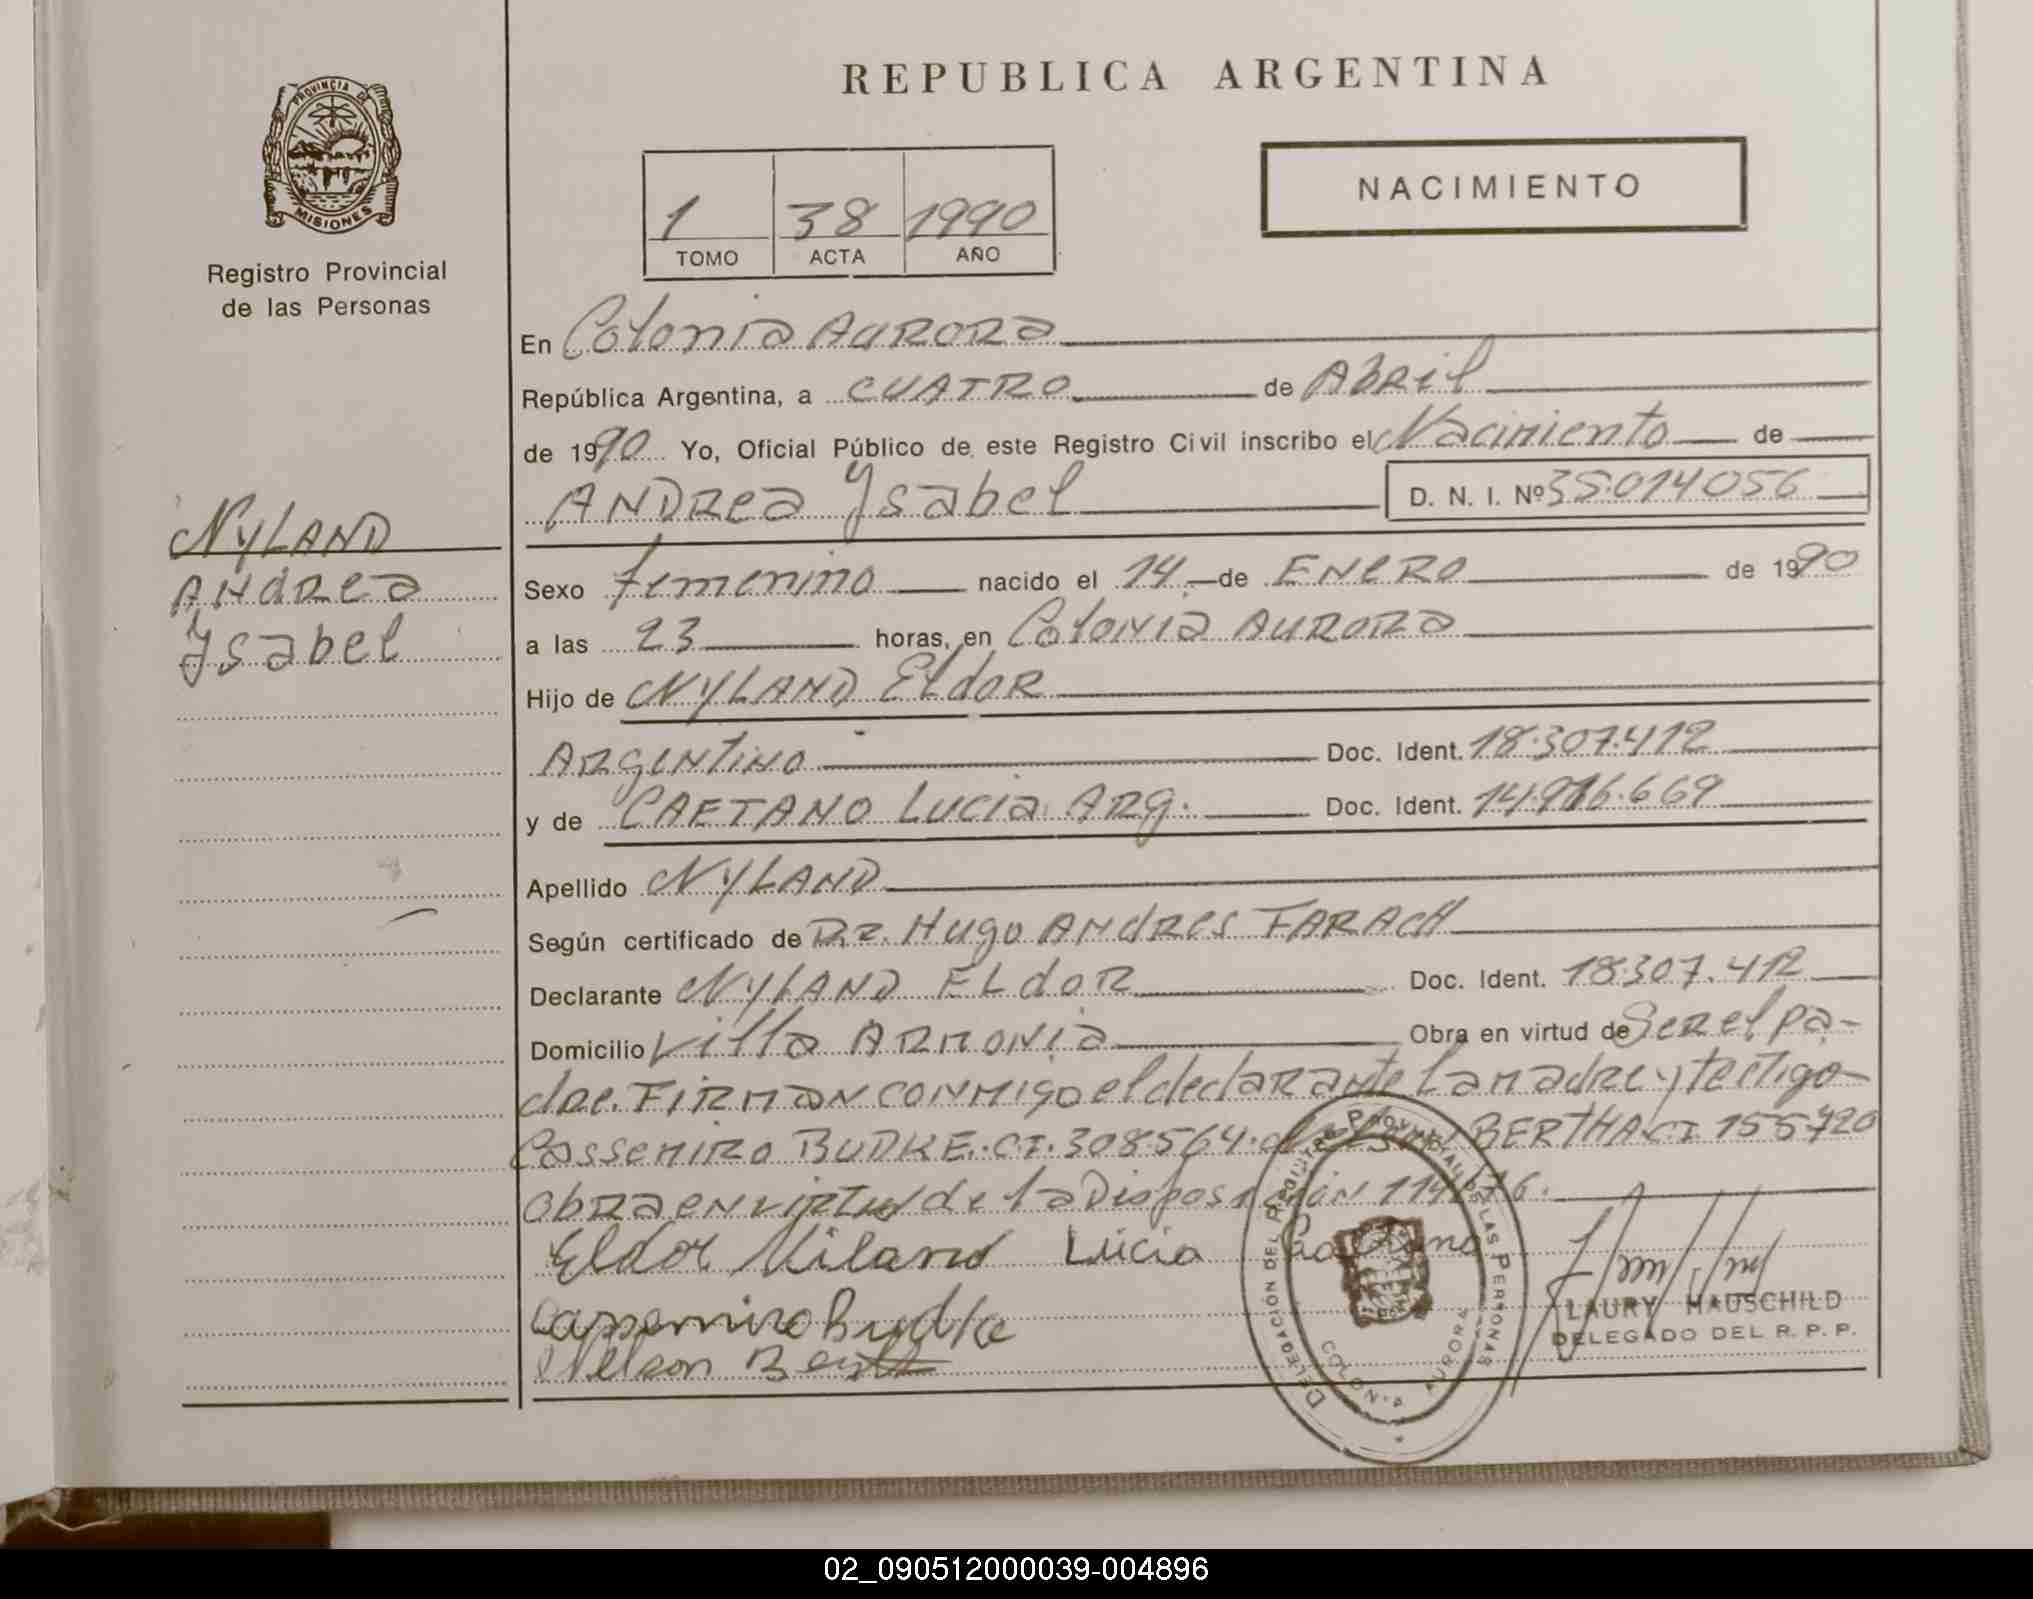 PROVINCIA DE
MISIONES
Registro Provincial
de las Personas
NYLAND
ANdRea
Ysabel
REPUBLICA ARGENTINA
NACIMIENTO
1 38 1990
TOMO ACTA AÑO
En Colonia AURORA
República Argentina, a CUATRO de ABRil
de 1990 Yo, Oficial Público de este Registro Civil inscribo el Nacimiento de
ANDRea Ysabel D. N. I. Nº 35.014056
Sexo femenino nacido el 14 de ENERO de 1990
a las 23 horas, en Colonia AURORA
Hijo de NYLAND ELdOR
ARgentino Doc. Ident. 18.307.412
y de CAETANO Lucia ARg. Doc. Ident.
Apellido NYLAND
Según certificado de DR. Hugo ANdRes FARACH
Declarante NYLAND ELdOR Doc. Ident. 18.307.412
Domicilio Villa ARMONia Obra en virtud de Ser el pa-
dre. FIRMAN CONMIGO el declarante la madre y testigo
Cassemiro BUDKE. C.I. 308.564. BERTHA C.I. 155720
obra en virtud de la Disposición
Eldor Niland Lucia Caetano
Cassemiro Budke
Nelson
LAURY HAUSCHILD
DELEGADO DEL R. P. P.
DELEGACIÓN DEL REGISTRO PROVINCIAL DE LAS PERSONAS
COLONIA AURORA
02_090512000039-004896